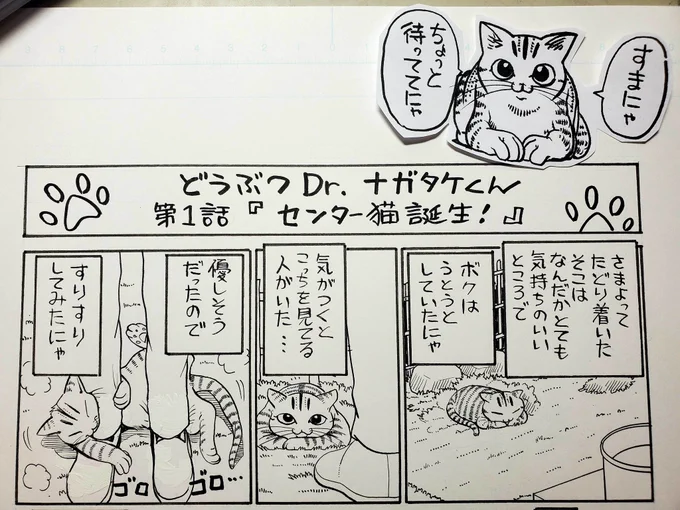 すまにゃ
ちょっと
待っててにゃ
どうぶつDr.ナガタケくん
第1話『センター猫誕生!』
さまよって
たどり着いた
そこは
なんだかとても
気持ちのいい
ところで
ボクは
うとうと
していたにゃ
気がつくと
こっちを見てる
人がいた…
優しそう
だったので
すりすり
してみたにゃ
ゴロ
ゴロ…